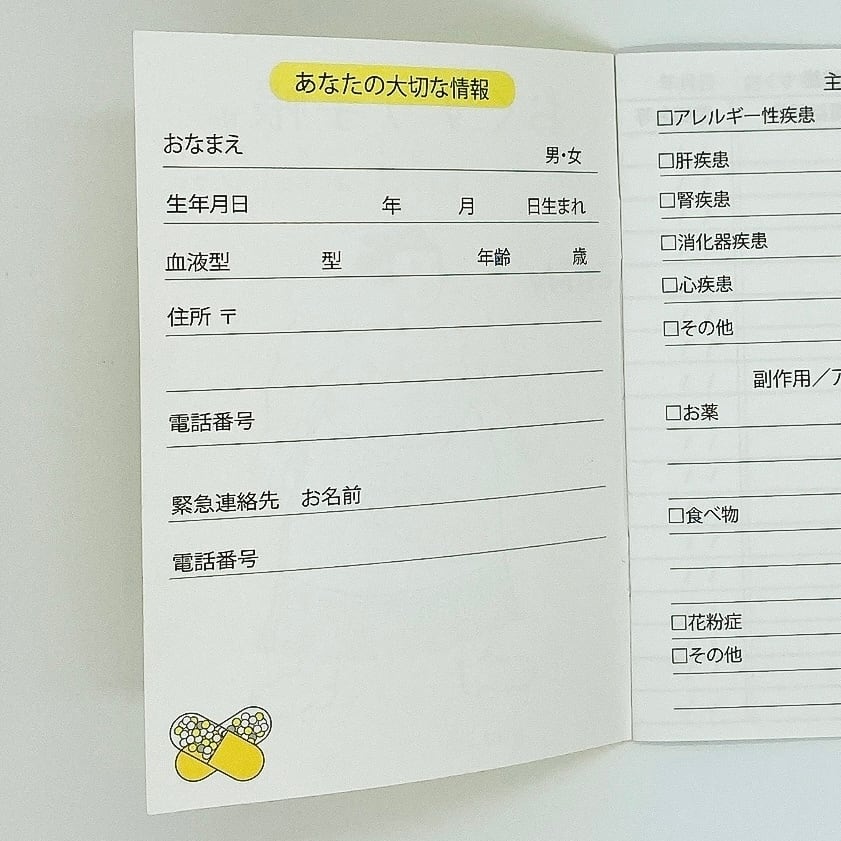 あなたの大切な情報
おなまえ 男・女
生年月日 年 月 日生まれ
血液型 型 年齢 歳
住所 〒
電話番号
緊急連絡先 お名前
電話番号
主
□アレルギー性疾患
□肝疾患
□腎疾患
□消化器疾患
□心疾患
□その他
副作用／ア
□お薬
□食べ物
□花粉症
□その他